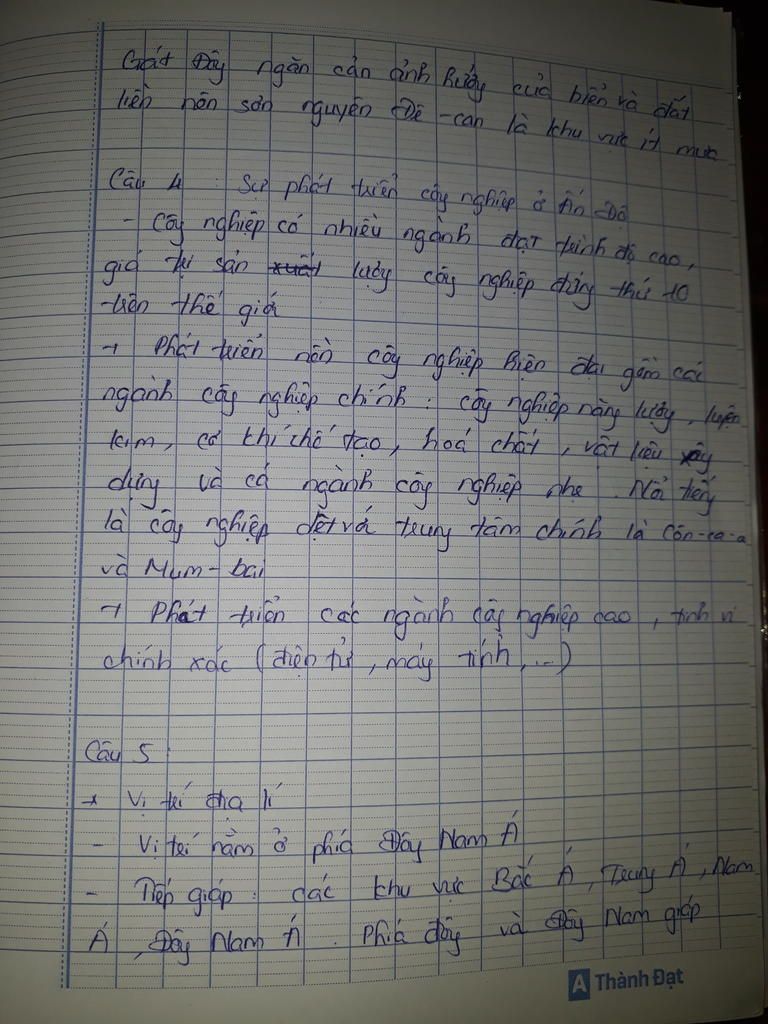 Gát Đây ngăn cản ảnh hưởg của biển và đất
liền nên sơn nguyên Đê-can là khu vực ít mưa
Câu 4 : Sự phát triển côg nghiệp ở Ấn Độ
- Côg nghiệp có nhiều ngành đạt trình độ cao,
giá trị sản xuất lượg côg nghiệp đứng thứ 10
trên thế giới
+ Phát triển nền côg nghiệp hiện đại gồm các
ngành côg nghiệp chính : côg nghiệp năng lượg, luyện
kim, cơ khí chế tạo, hoá chất, vật liệu xây
dựng và cả ngành côg nghiệp nhẹ. Nổi tiếg
là côg nghiệp dệt với trung tâm chính là Côn-ca-a
và Mum-bai
+ Phát triển các ngành côg nghiệp cao, tinh vi
chính xác (điện tử, máy tính,...)
Câu 5 :
+ Vị trí địa lí
- Vị trí nằm ở phía Đôg Nam Á
- Tiếp giáp : các khu vực Bắc Á, Trung Á, Nam
Á, Đôg Nam Á. Phía đôg và Đôg Nam giáp
A Thành Đạt